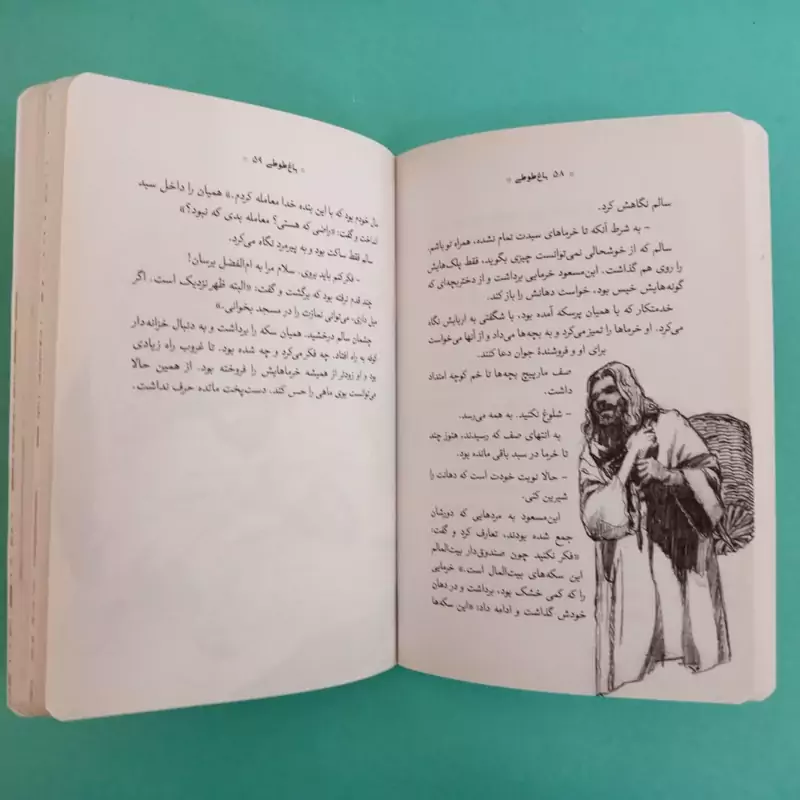 * ۵۸ باغ طوطی *
سالم نگاهش کرد.
- به شرط آنکه تا خرماهای سبدت تمام نشده، همراه تو باشم.
سالم که از خوشحالی نمی‌توانست چیزی بگوید، فقط پلک‌هایش
را روی هم گذاشت. ابن‌مسعود خرمایی برداشت و از دختربچه‌ای که
گونه‌هایش خیس بود، خواست دهانش را باز کند.
خدمتکار که با همیان پرسکه آمده بود، با شگفتی به اربابش نگاه
می‌کرد. او خرماها را تمیز می‌کرد و به بچه‌ها می‌داد و از آنها می‌خواست
برای او و فروشندهٔ جوان دعا کنند.
صف مارپیچ بچه‌ها تا خم کوچه امتداد
داشت.
- شلوغ نکنید. به همه می‌رسد.
به انتهای صف که رسیدند، هنوز چند
تا خرما در سبد باقی مانده بود.
- حالا نوبت خودت است که دهانت را
شیرین کنی.
ابن‌مسعود به مردهایی که دورشان
جمع شده بودند، تعارف کرد و گفت:
«فکر نکنید چون صندوق‌دار بیت‌المالم
این سکه‌های بیت‌المال است.» خرمایی
را که کمی خشک بود، برداشت و در دهان
خودش گذاشت و ادامه داد: «این سکه‌ها
* باغ طوطی ۵۹ *
مال خودم بود که با این بنده خدا معامله کردم.» همیان را داخل سبد
انداخت و گفت: «راضی که هستی؟ معامله بدی که نبود؟»
سالم فقط ساکت بود و به پیرمرد نگاه می‌کرد.
- فکر کنم باید بروی. سلام مرا به ام‌الفضل برسان!
چند قدم نرفته بود که برگشت و گفت: «البته ظهر نزدیک است. اگر
میل داری، می‌توانی نمازت را در مسجد بخوانی.»
چشمان سالم درخشید. همیان سکه را برداشت و به دنبال خزانه‌دار
کوفه به راه افتاد. چه فکر می‌کرد و چه شده بود. تا غروب راه زیادی
بود و او زودتر از همیشه خرماهایش را فروخته بود. از همین حالا
می‌توانست بوی ماهی را حس کند. دست‌پخت مائده حرف نداشت.